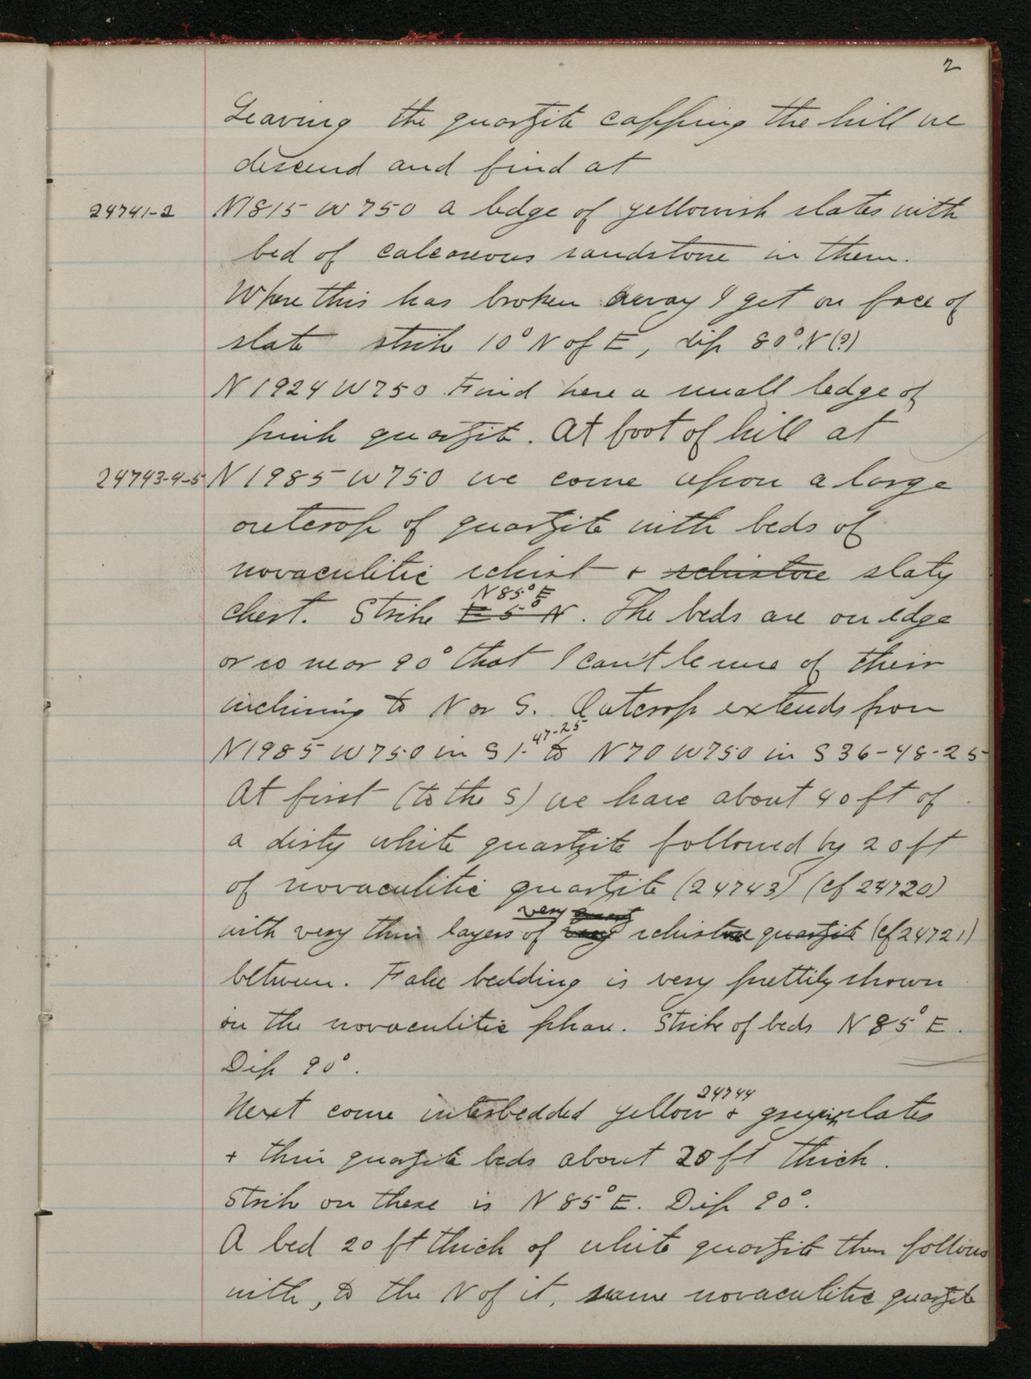 2
Leaving the quartzite capping the hill we
descend and find at
24741-2 N1815 W750 a ledge of yellowish slates with
bed of calcareous sandstone in them.
Where this has broken away I get on face of
slate strike 10° N of E, dip 80° N (?)
N1924 W750 Find here a small ledge of
pink quartzite. At foot of hill at
24743-4-5 N1985 W750 we come upon a large
outcrop of quartzite with beds of
novaculitic schist + schistose slaty
N85°E
chert. Strike E 5° N. The beds are on edge
or so near 90° that I can't be sure of their
inclining to N or S. Outcrop extends from
47-25
N1985 W750 in S 1- to N70 W750 in S 36-48-25
At first (to the S) we have about 40 ft of
a dirty white quartzite followed by 20 ft
of novaculitic quartzite (24743) (cf 24720)
very
with very thin layers of very schistose quartzite (cf 24721)
between. False bedding is very prettily shown
in the novaculitic phase. Strike of beds N 85° E.
Dip 90°.
24744
Next come interbedded yellow + greyish slates
+ thin quartzite beds about 20 ft thick.
Strike on these is N 85° E. Dip 90°.
A bed 20 ft thick of white quartzite then follows
with, to the N of it, same novaculitic quartzite